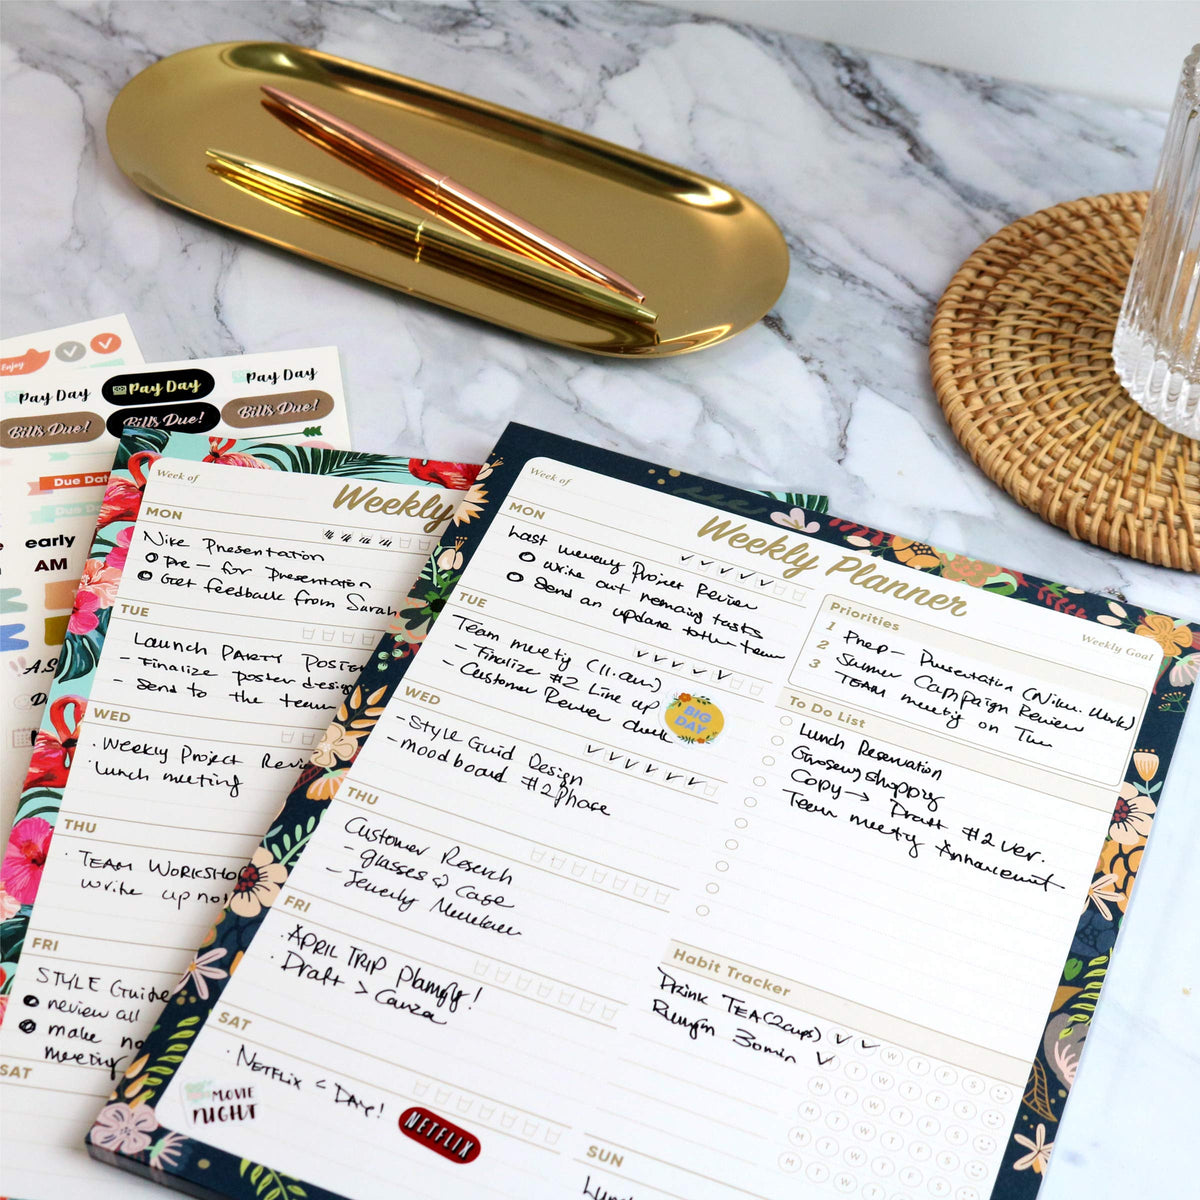 Enjoy
Pay Day
Pay Day
Pay Day
Bills Due!
Bills Due!
Bills Due!
Due Dat
Due Dat
early
AM
Week of
Weekly
MON
Nike Presentation
Pre- for Presentation
Get feedback from Sarah
TUE
Launch PARTY POSTE
- Finalize poster desig
- Send to the team
WED
· Weekly Project Revi
· Lunch meeting
THU
· TEAM WORKSHO
write up no
FRI
STYLE Guide
review all
make no
meeting
SAT
Week of
Weekly Planner
MON
Last Project Review
write out remaing tasks
Send an update to the team
TUE
Team meetig (11.am)
- Finalize #2 Line up
- Customer Review
BIG
DAY
WED
- Style Guid Design
- moodboard #2 Phase
THU
Customer Reserch
- glasses & Case
- Jewerly
FRI
· APRIL TRIP
· Draft > Canva
SAT
· NETFLIX < Day!
MOVIE
NIGHT
NETFLIX
SUN
Lun
Priorities
Weekly Goal
1 Prep- Presentation
2 Summer Campaign Review
3 TEAM meetig on Tue
To Do List
Lunch Reservation
Grocery shopping
Copy → Draft #2 ver.
Team meetig
Habit Tracker
Drink TEA (2cups)
30min
W T F S
M T W T F S
M T W T F S
M T W T F S
M T W T F S